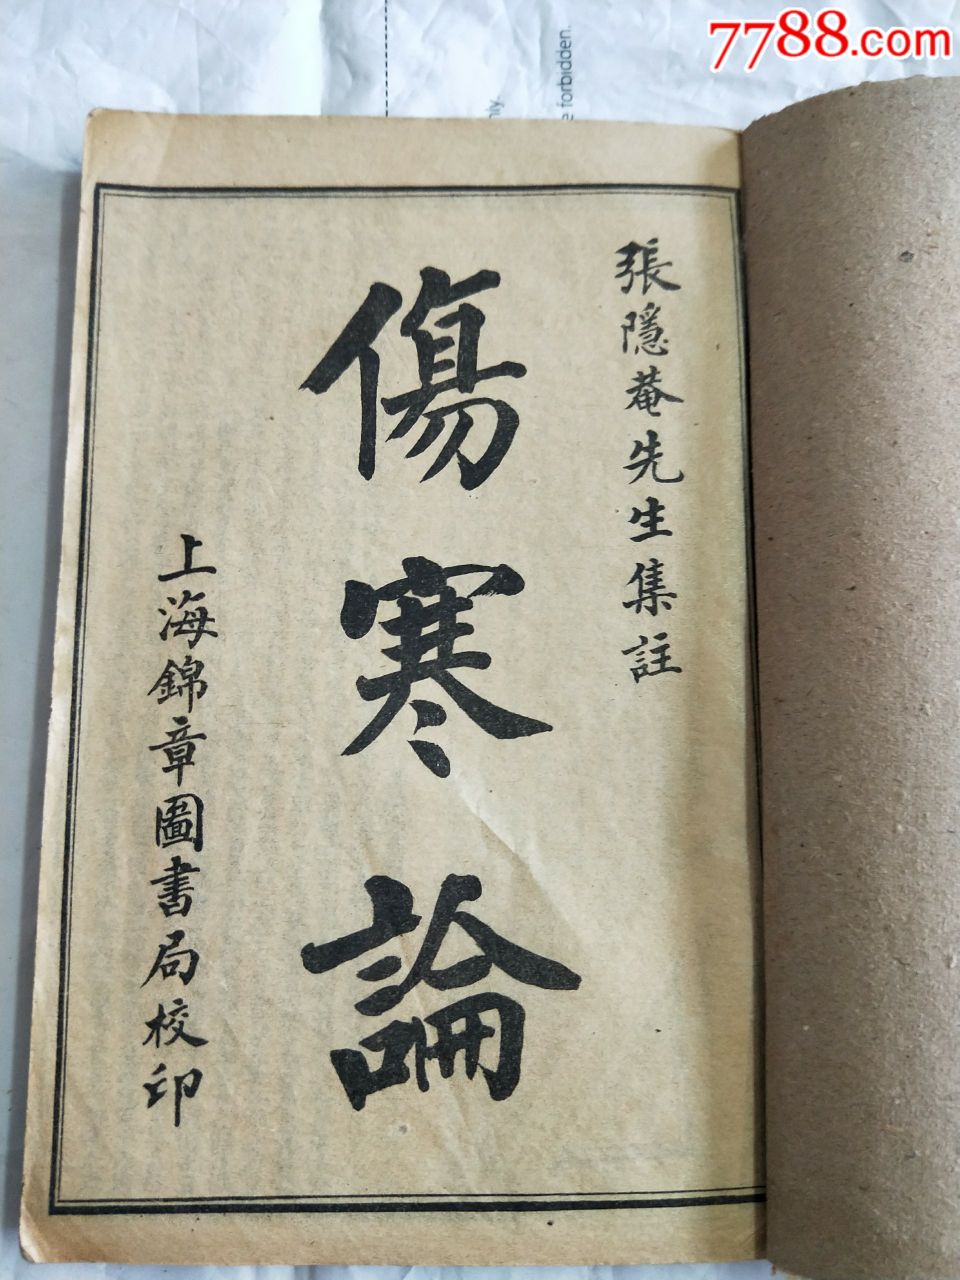 7788.com
only.
e forbidden.
張隱菴先生集註
傷寒論
上海錦章圖書局校印